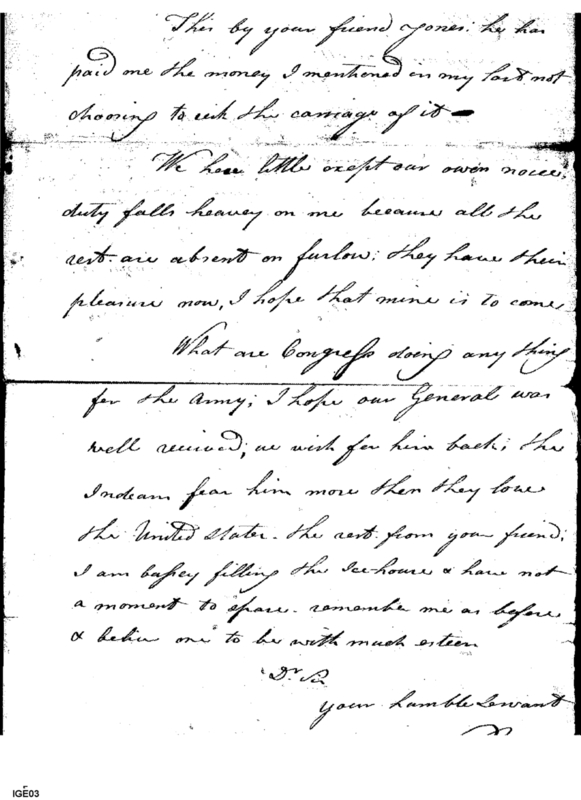 This by your friend Jones: he has
paid me the money I mentioned in my last not
choosing to risk the carriage of it -
We have little exept our owen noise,
duty falls heavey on me because all the
rest are absent on furlow: they have their
pleasure now, I hope that mine is to come
What are Congress doing any thing
for the Army; I hope our General was
well received; we wish for him back; the
Indeans fear him more then they love
the United States. the rest from your friend;
I am bussey filling the Ice-house & have not
a moment to spare. remember me as before
& believe me to be with much esteem
Dr Sir
your humble Servant
IGE03